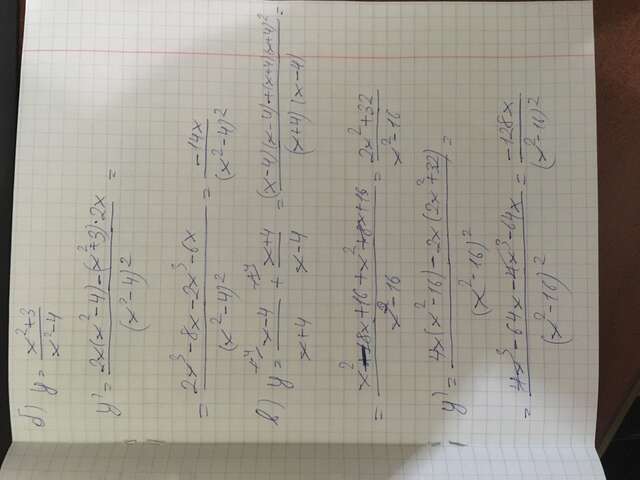 б) y = (x²+3)/(x²-4)
y' = (2x(x²-4)-(x²+3)·2x)/(x²-4)² =
= (2x³-8x-2x³-6x)/(x²-4)² = -14x/(x²-4)²
в) y = (x-4)/(x+4) + (x+4)/(x-4) = ((x-4)(x-4)+(x+4)(x+4))/((x+4)(x-4)) =
= (x²-8x+16+x²+8x+16)/(x²-16) = (2x²+32)/(x²-16)
y' = (4x(x²-16)-2x(2x²+32))/(x²-16)² =
= (4x³-64x-4x³-64x)/(x²-16)² = -128x/(x²-16)²